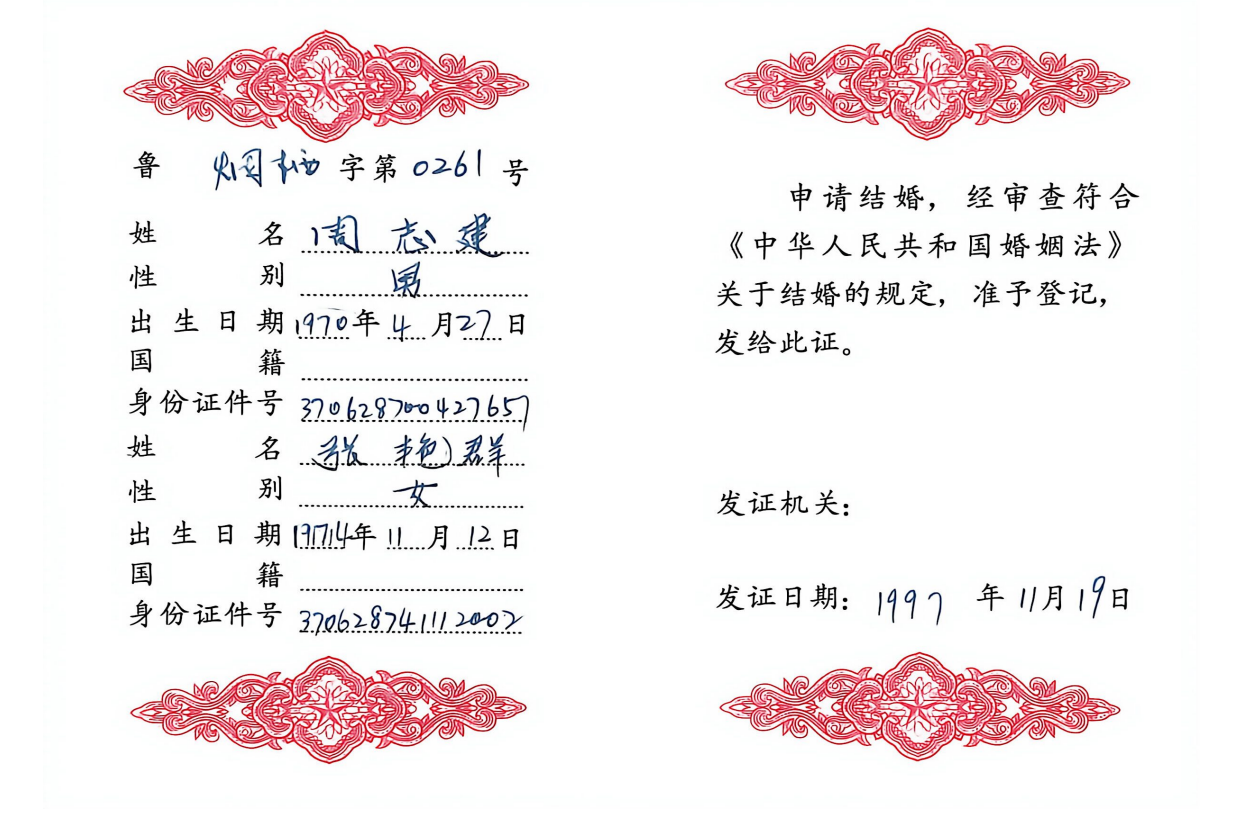 鲁 烟栖 字第 0261 号
姓名 周志建
性别 男
出生日期 1970年 4 月27 日
国籍
身份证件号 370628700427657
姓名 张艳群
性别 女
出生日期 1974年 11 月 12 日
国籍
身份证件号 370628741112002
申请结婚，经审查符合
《中华人民共和国婚姻法》
关于结婚的规定，准予登记，
发给此证。
发证机关：
发证日期：1997 年 11月 19日